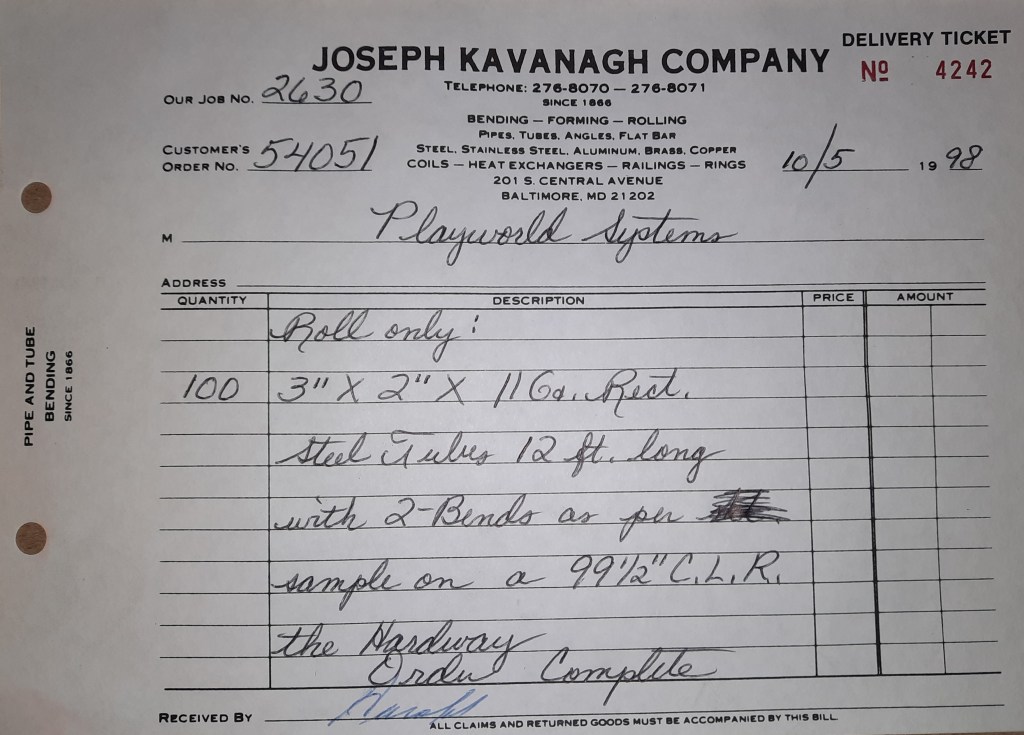 DELIVERY TICKET
JOSEPH KAVANAGH COMPANY
Nº 4242
OUR JOB NO. 2630
TELEPHONE: 276-8070 — 276-8071
SINCE 1866
BENDING — FORMING — ROLLING
PIPES, TUBES, ANGLES, FLAT BAR
CUSTOMER'S
ORDER NO. 54051
STEEL, STAINLESS STEEL, ALUMINUM, BRASS, COPPER
COILS — HEAT EXCHANGERS — RAILINGS — RINGS
10/5 1998
201 S. CENTRAL AVENUE
BALTIMORE, MD 21202
M Playworld Systems
ADDRESS
QUANTITY DESCRIPTION PRICE AMOUNT
Roll only:
100 3" X 2" X 11 Ga. Rect.
Steel Tubes 12 ft. long
with 2-Bends as per
sample on a 99 1/2" C.L.R.
the Hardway
Order Complete
RECEIVED BY
ALL CLAIMS AND RETURNED GOODS MUST BE ACCOMPANIED BY THIS BILL
PIPE AND TUBE
BENDING
SINCE 1866